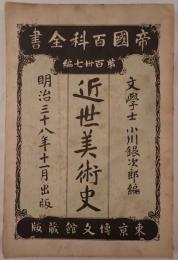 帝國百科全書
第百卅七編
文學士 小川銀次郎編
近世美術史
明治三十八年十一月出版
東京博文館蔵版